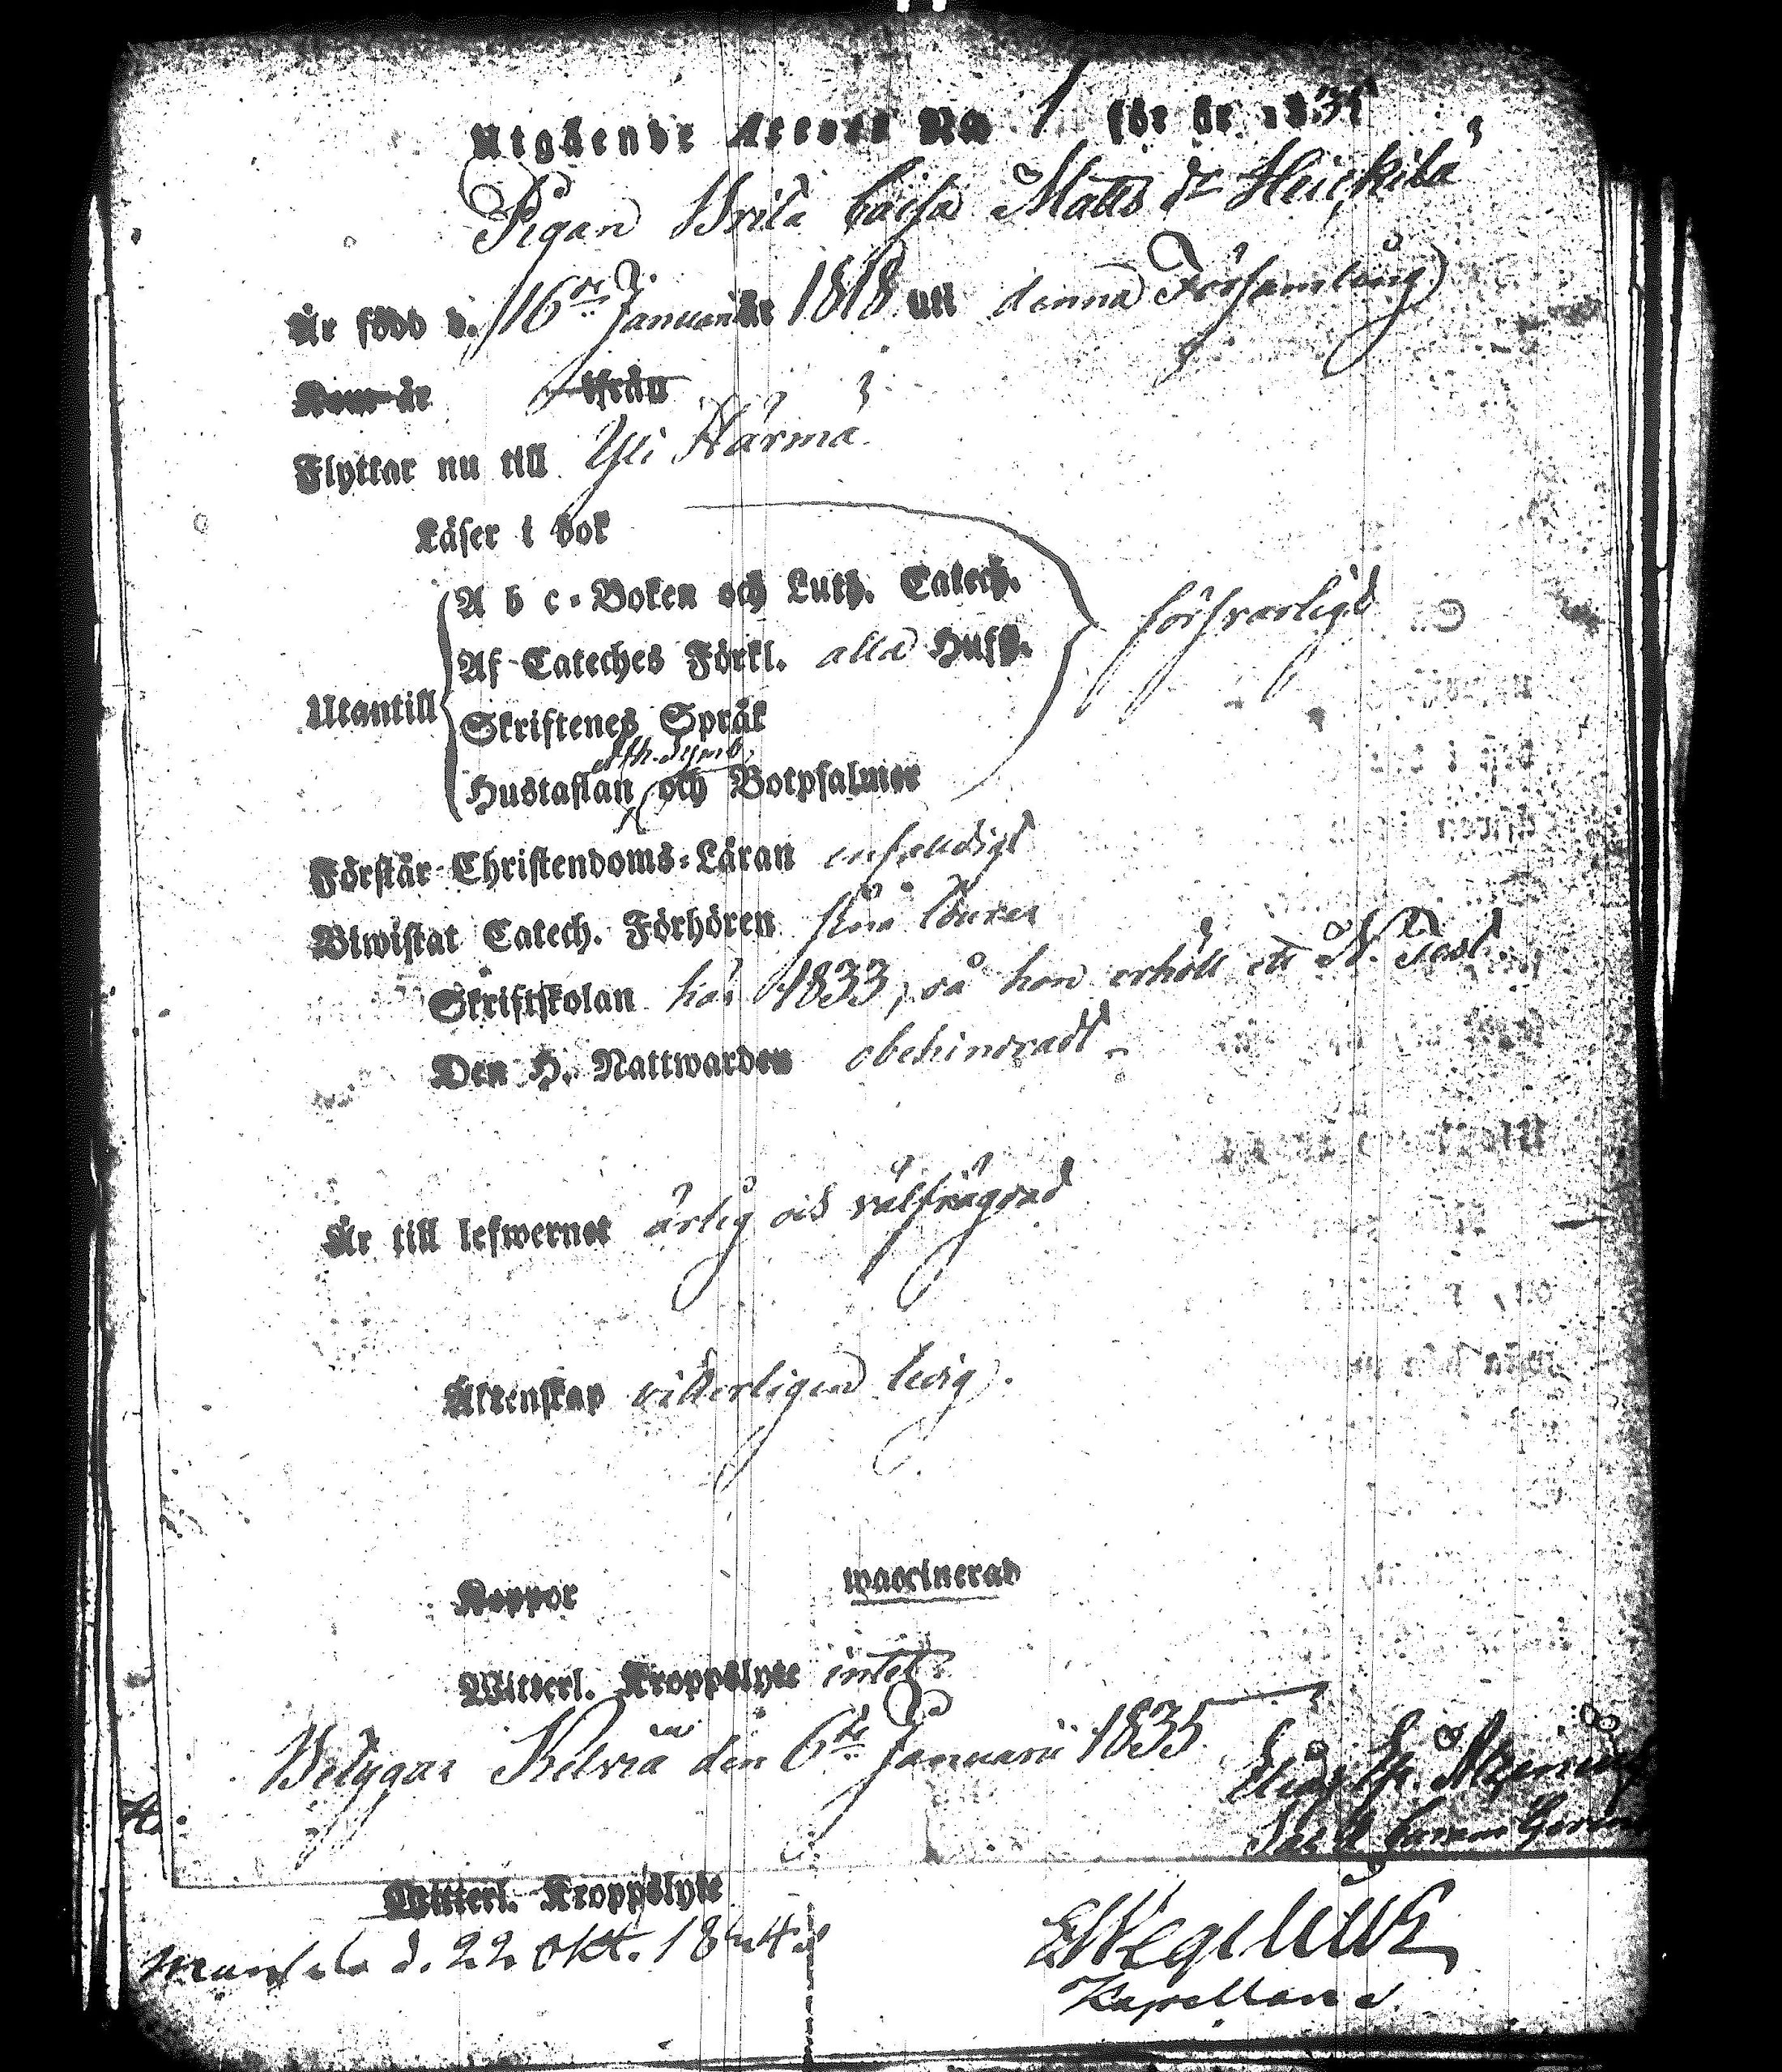 Utgående Attest No 1 för år 1835
Pigan Brita Cajsa Matts dr Heickilä
Är född d. 16de Januari år 1818 uti denna Församling
Kom år ifrån
Flyttar nu till Yli Härmä
Läser i bok
A b c-Boken och Luth. Catech.
Af Cateches Förkl. alla Hufst.
försvarligt
Utantill
Skriftenes Språk
Ath. Symb.
Hustaflan och Botpsalmer
Förstår Christendoms-Läran enfaldigt
Biwistat Catech. Förhören
Skriftskolan här 1833, då hon erhöll ett N. Test.
Den H. Nattwarden obehindradt
Är till lefwernet ärlig och välfrägdad
Äktenskap vitterligen ledig.
Koppor waccinerad
Witterl. Kroppslyte intet
Betygar Kelviå den 6te Januarii 1835.
Witterl. Kroppslyte
d. 22 okt.
Wegelius
Kapellan